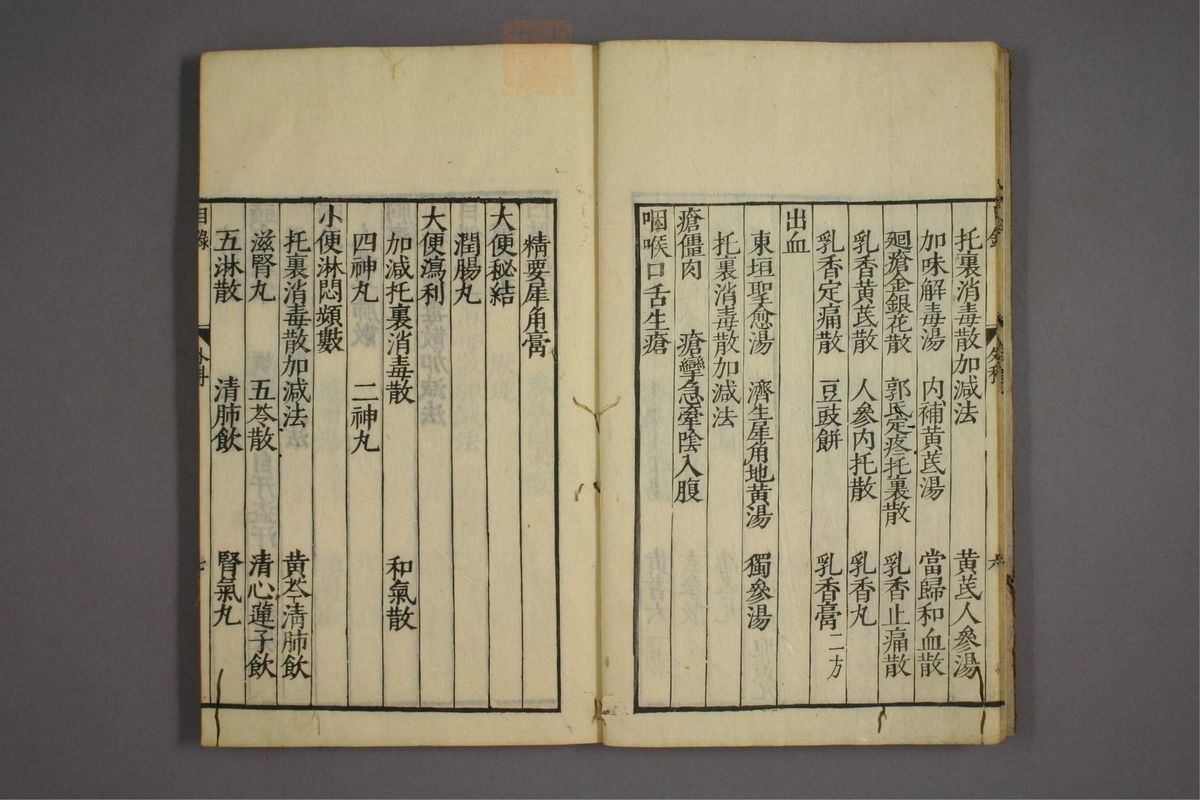 托裏消毒散加減法 黃芪人參湯
加味解毒湯 內補黃芪湯 當歸和血散
廻瘡金銀花散 郭氏定疼托裏散 乳香止痛散
乳香黃芪散 人參內托散 乳香丸
乳香定痛散 豆豉餅 乳香膏二方
出血
東垣聖愈湯 濟生犀角地黃湯 獨參湯
托裏消毒散加減法
瘡僵肉 瘡攣急牽陰入腹
咽喉口舌生瘡
精要犀角膏
大便秘結
潤腸丸
大便瀉利
加減托裏消毒散 和氣散
四神丸 二神丸
小便淋悶頻數
托裏消毒散加減法 黃芩清肺飲
滋腎丸 五苓散 清心蓮子飲
五淋散 清肺飲 腎氣丸
目錄 外科 七